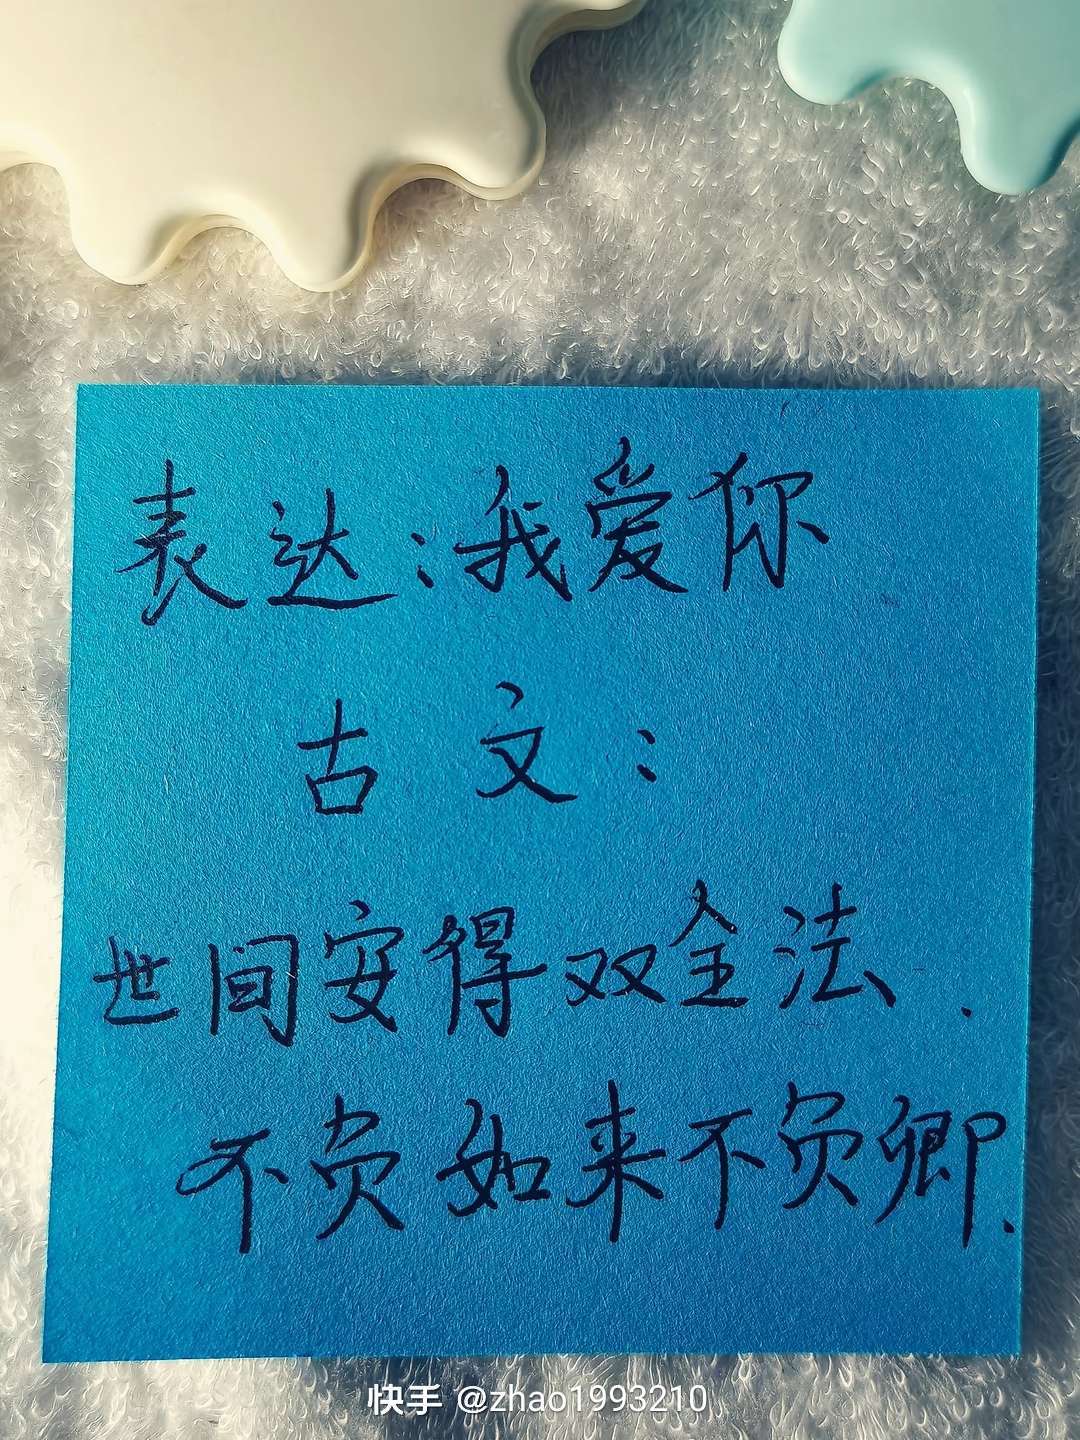 表达:我爱你
古文:
世间安得双全法.
不负如来不负卿.
快手 @zhao1993210